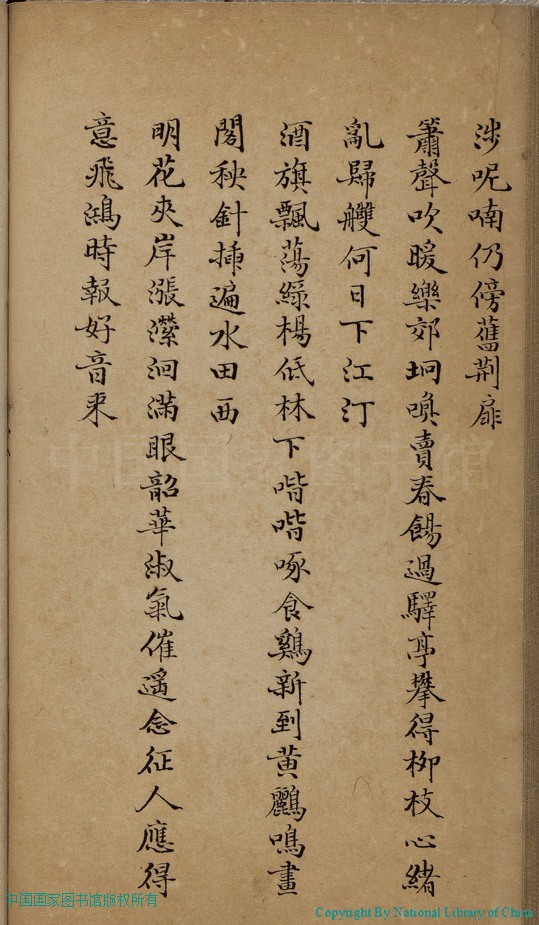 涉呢喃仍傍舊荆扉
簫聲吹暖樂郊坰喚賣春餳過驛亭攀得柳枝心緒
亂歸艭何日下江汀
酒旗飄蕩綠楊低林下喈喈啄食鷄新到黃鸝鳴畫
閣秧針揷遍水田西
明花夾岸漲瀠洄滿眼韶華淑氣催遥念征人應得
意飛鴻時報好音来
中国国家图书馆
中国国家图书馆版权所有
Copyright By National Library of China